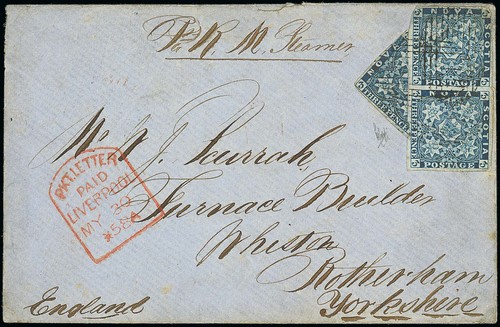 Pr R. M. Steamer
NOVA SCOTIA
THREE PENCE
POSTAGE
NOVA SCOTIA
THREE PENCE
POSTAGE
NOVA
THREE PENCE
Mr W J. Scurrah,
Furnace Builder
Whiston
Rotherham
Yorkshire
England
PKT. LETTER
PAID
LIVERPOOL
MY 30
58